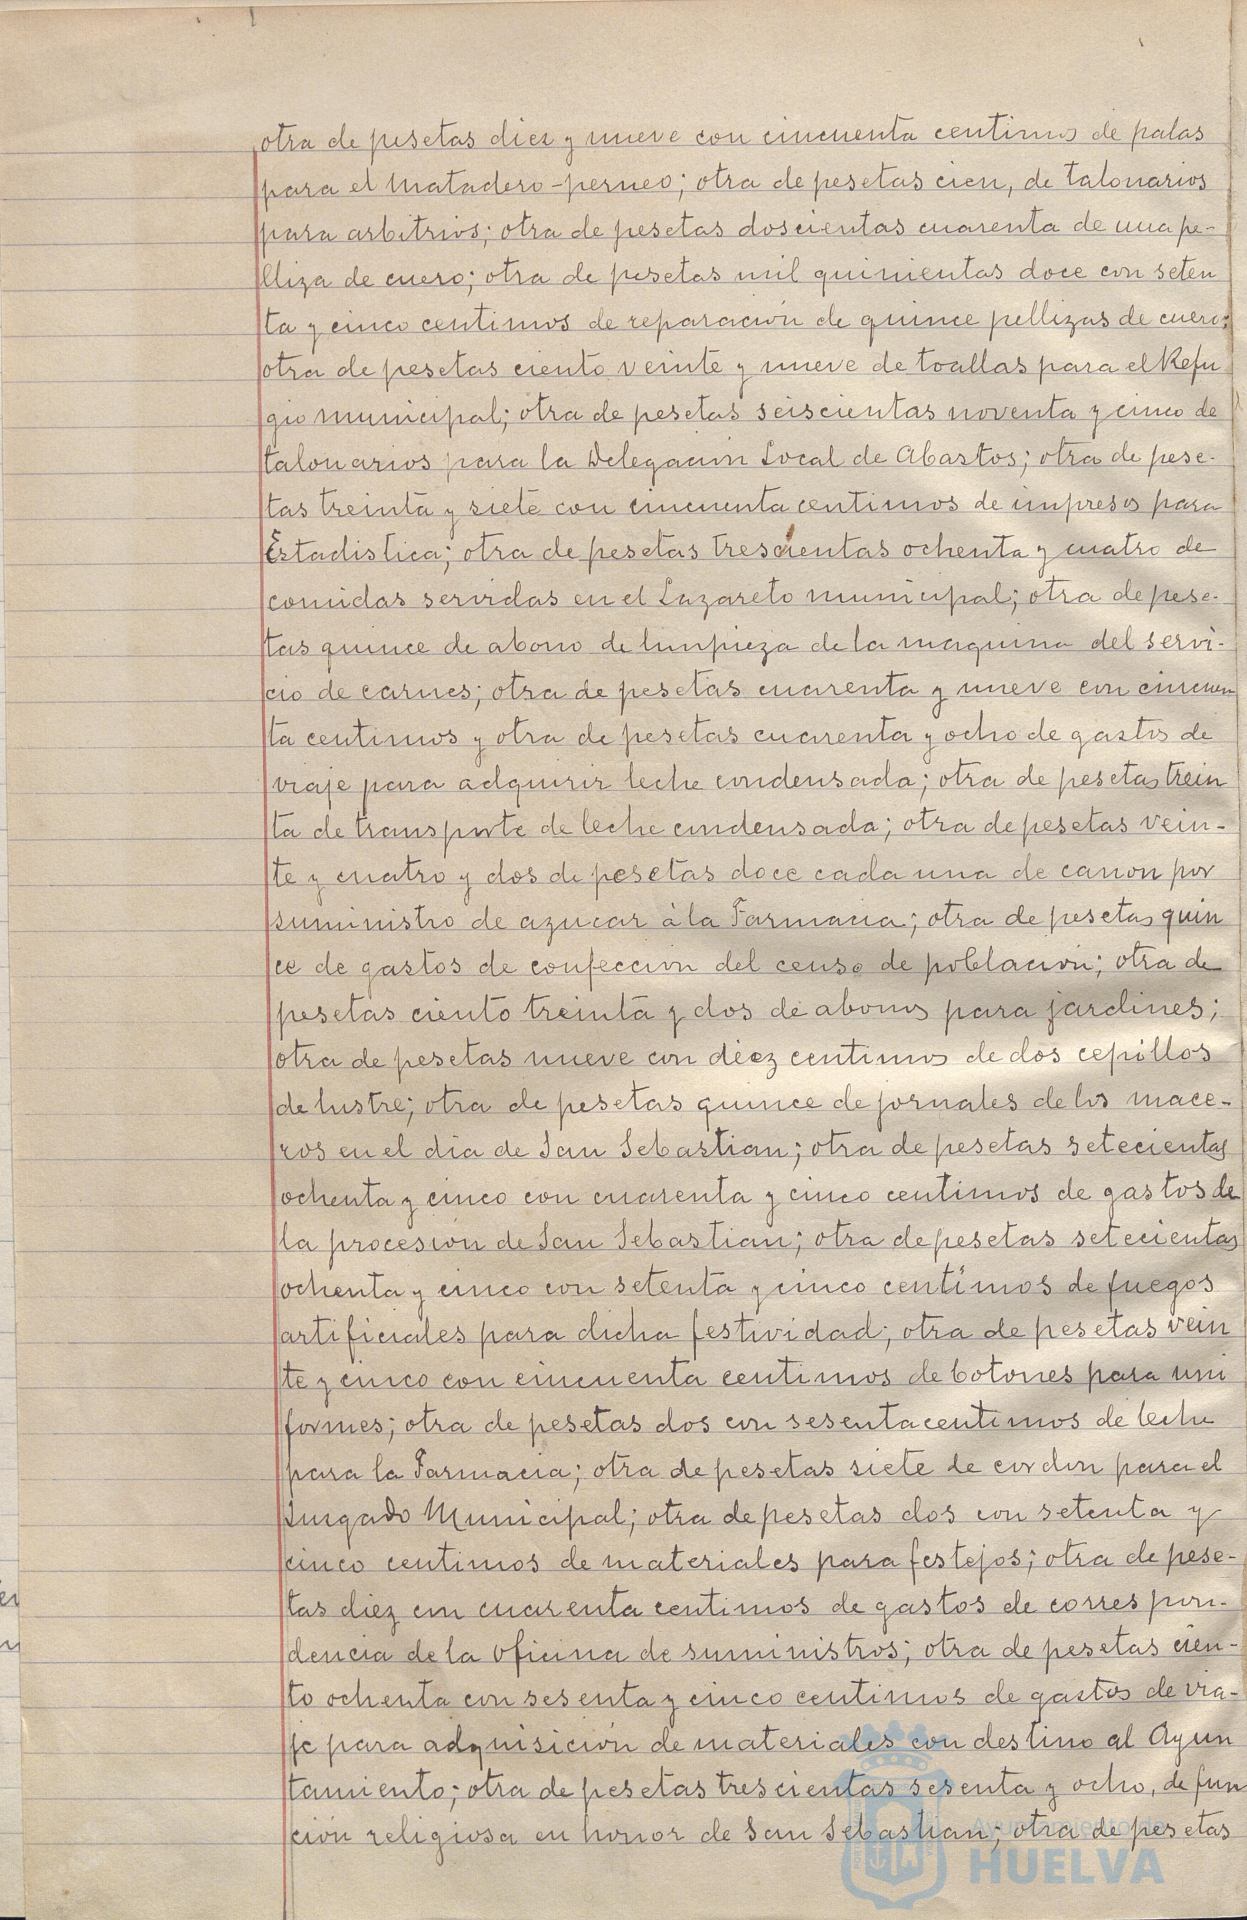 otra de pesetas diez y nueve con cincuenta centimos de palas
para el Matadero-perneo; otra de pesetas cien, de talonarios
para arbitrios; otra de pesetas doscientas cuarenta de una pe-
lliza de cuero; otra de pesetas mil quinientas doce con seten
ta y cinco centimos de reparación de quince pellizas de cuero;
otra de pesetas ciento veinte y nueve de toallas para el Refu
gio municipal; otra de pesetas seiscientas noventa y cinco de
talonarios para la Delegación Local de Abastos; otra de pese-
tas treinta y siete con cincuenta centimos de impresos para
Estadistica; otra de pesetas trescientas ochenta y cuatro de
comidas servidas en el Lazareto municipal; otra de pese-
tas quince de abono de limpieza de la maquina del servi-
cio de carnes; otra de pesetas cuarenta y nueve con cincuen
ta centimos y otra de pesetas cuarenta y ocho de gastos de
viaje para adquirir leche condensada; otra de pesetas trein
ta de transporte de leche condensada; otra de pesetas vein-
te y cuatro y dos de pesetas doce cada una de canon por
suministro de azucar à la Farmacia; otra de pesetas quin
ce de gastos de confeccion del censo de población; otra de
pesetas ciento treinta y dos de abonos para jardines;
otra de pesetas nueve con diez centimos de dos cepillos
de lustre; otra de pesetas quince de jornales de los mace-
ros en el dia de San Sebastian; otra de pesetas setecientas
ochenta y cinco con cuarenta y cinco centimos de gastos de
la procesión de San Sebastian; otra de pesetas setecientas
ochenta y cinco con setenta y cinco centimos de fuegos
artificiales para dicha festividad; otra de pesetas vein
te y cinco con cincuenta centimos de botones para uni
formes; otra de pesetas dos con sesenta centimos de leche
para la Farmacia; otra de pesetas siete de cordon para el
Juzgado Municipal; otra de pesetas dos con setenta y
cinco centimos de materiales para festejos; otra de pese-
tas diez con cuarenta centimos de gastos de correspon-
dencia de la oficina de suministros; otra de pesetas cien-
to ochenta con sesenta y cinco centimos de gastos de via-
je para adquisición de materiales con destino al Ayun
tamiento; otra de pesetas trescientas sesenta y ocho, de fun
ción religiosa en honor de San Sebastian; otra de pesetas
Ayuntamiento de
HUELVA